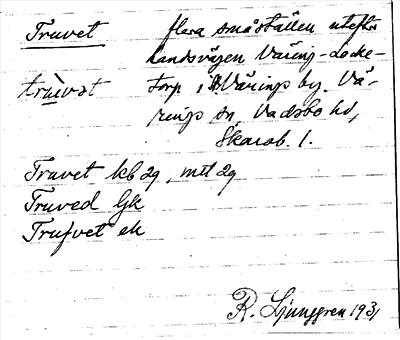 Truvet flera småställen utefter
landsvägen Väring-Locke-
trùvət torp i Värings by. Vä-
rings sn, Vadsbo hd,
Skarab. l.
Truvet kb 29, mtl 29
Truved Gk
Trufvet ek
R. Ljunggren 1931